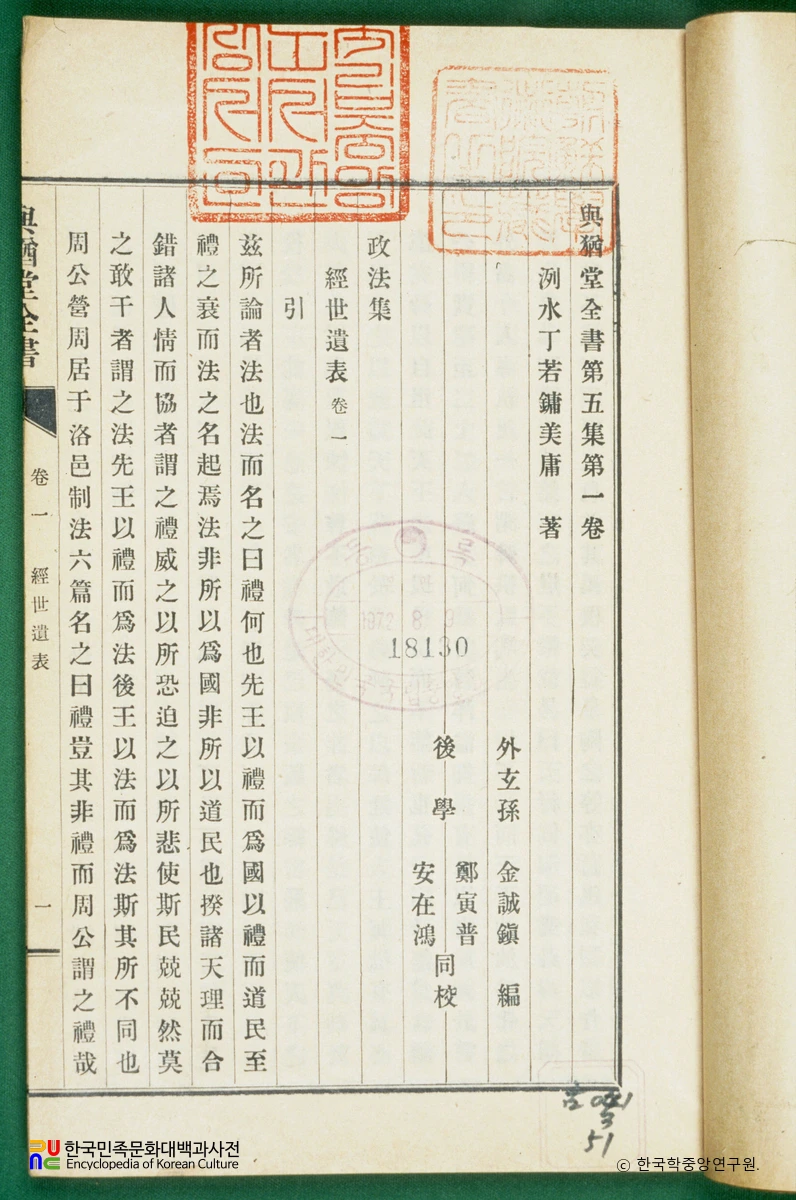 與猶堂全書第五集第一卷
洌水丁若鏞美庸 著
外玄孫 金誠鎭 編
後學 鄭寅普 安在鴻 同校
政法集
經世遺表 卷一
引
玆所論者法也法而名之曰禮何也先王以禮而爲國以禮而道民至
禮之衰而法之名起焉法非所以爲國非所以道民也揆諸天理而合
錯諸人情而協者謂之禮威之以所恐迫之以所悲使斯民兢兢然莫
之敢干者謂之法先王以禮而爲法後王以法而爲法斯其所不同也
周公營周居于洛邑制法六篇名之曰禮豈其非禮而周公謂之禮哉
與猶堂全書
卷一 經世遺表
一
등록
1972 8 9
18130
51
한국민족문화대백과사전
Encyclopedia of Korean Culture
ⓒ 한국학중앙연구원.